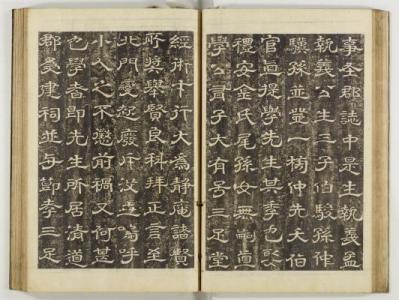 事全郡誌中是生執義孟
執義公生三子伯駿孫仲
驥孫並登一榜仲先夭伯
官直提學先生其季也娶
禮安金氏尾孫女無嗣直
學公言子大有号三足堂
經術才行大為靜庵諸賢
所奬擧賢良科拜正言至
北門變起廢斥沒世嗚呼
小人之不懲前禍又何甚
也學者即先生所居清道
郡爰建祠並与節孝三足